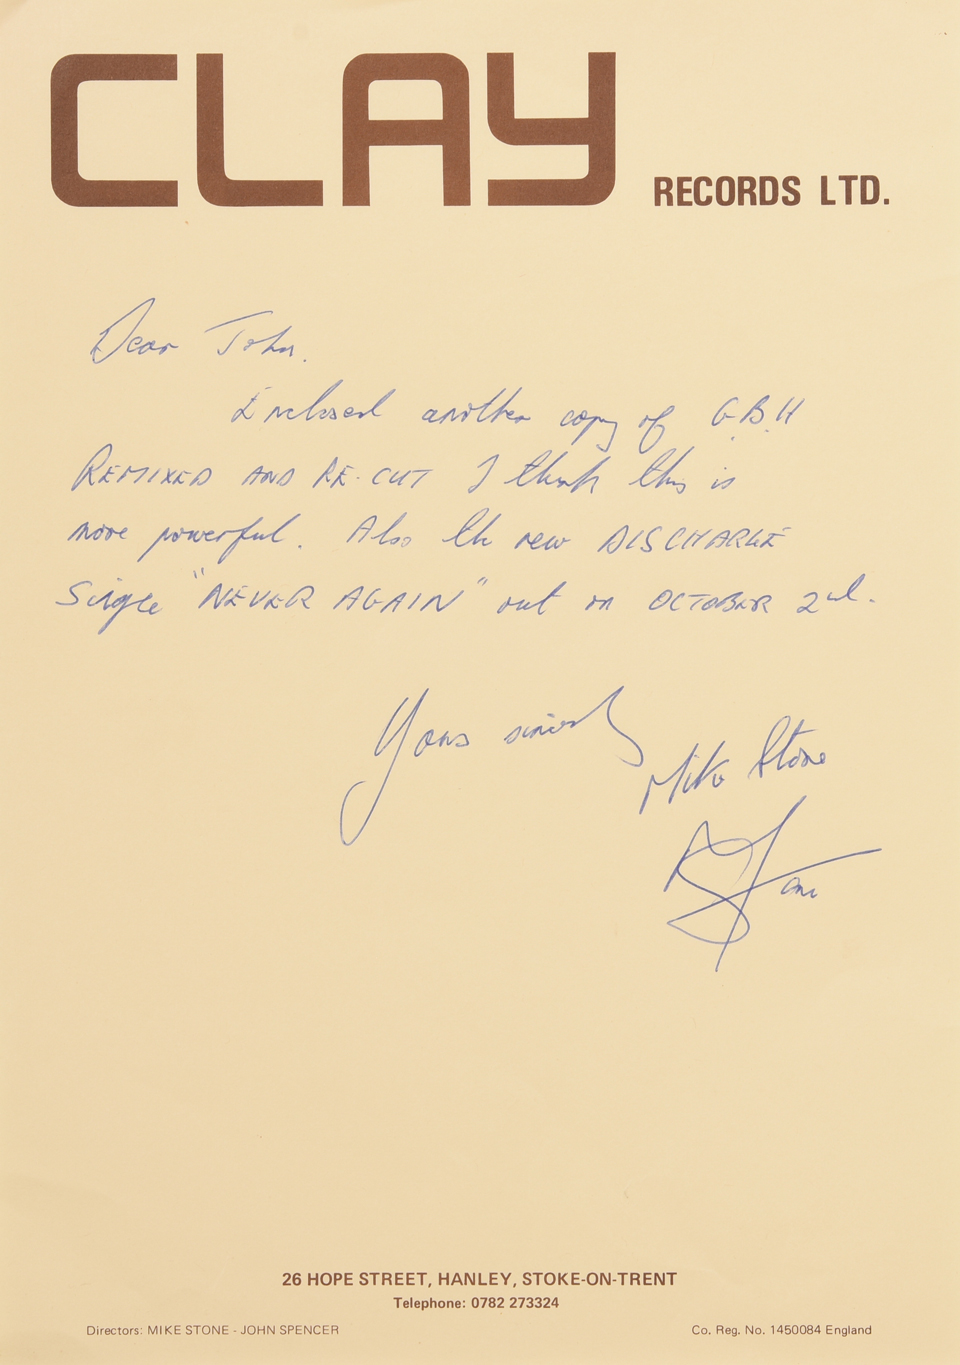 CLAY RECORDS LTD.
Dear John.
Enclosed another copy of G.B.H
REMIXED AND RE-CUT I think this is
more powerful. Also the new DISCHARGE
Single "NEVER AGAIN" out on OCTOBER 2nd.
Yours sincerely
Mike Stone
26 HOPE STREET, HANLEY, STOKE-ON-TRENT
Telephone: 0782 273324
Directors: MIKE STONE - JOHN SPENCER
Co. Reg. No. 1450084 England